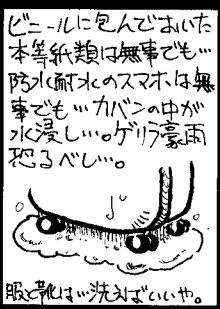 ビニールに包んでおいた
本等紙類は無事でも…
防水耐水のスマホは無
事でも…カバンの中が
水浸し…。ゲリラ豪雨
恐るべし…。
服と靴は…洗えばいいや。